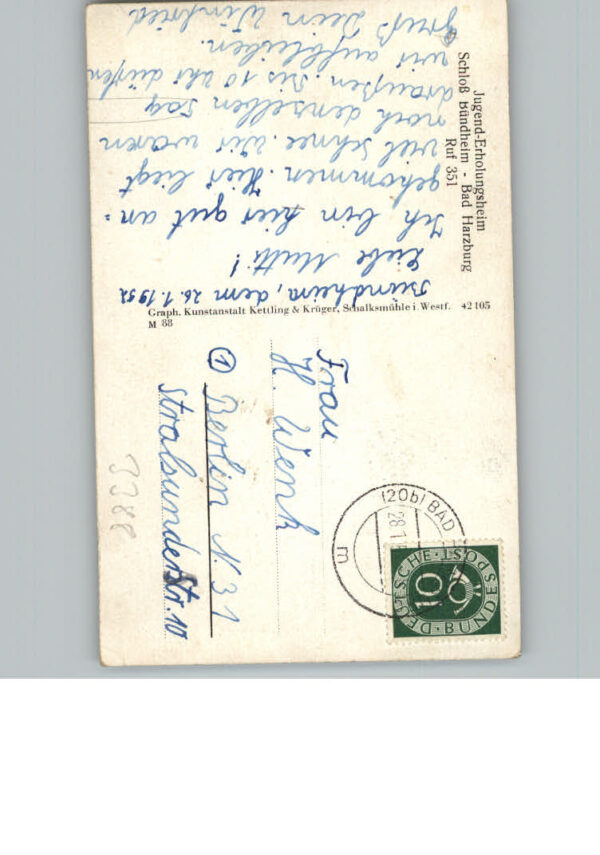 Jugend-Erholungsheim
Schloß Bündheim - Bad Harzburg
Ruf 351
Bündheim, dem 26.1.1952
Liebe Mutti!
Ich bin hier gut an-
gekommen. Hier liegt
viel Schnee. Wir waren
noch denselben Tag
draußen. Bis 10 Uhr dürfen
wir aufbleiben.
Gruß Dein Winfried
Graph. Kunstanstalt Kettling & Krüger, Schalksmühle i. Westf. 42105
M 88
Frau
H. Wenk
① Berlin N. 31
Stralsunderstr. 10
3388
(20b) BAD
28.1
m
DEUTSCHE BUNDESPOST
10